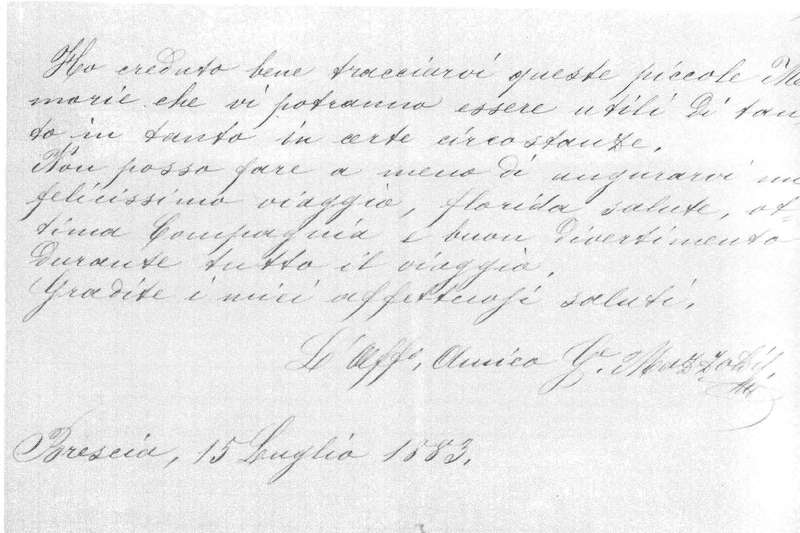 Ho creduto bene tracciarvi queste piccole Me
morie che vi potranno essere utili di tan-
to in tanto in certe circostanze.
Non posso fare a meno di augurarvi un
felicissimo viaggio, florida salute, ot-
tima Compagnia e buon divertimento
durante tutto il viaggio.
Gradite i miei affettuosi saluti.
L'Affo. Amico G.
Brescia, 15 Luglio 1883.